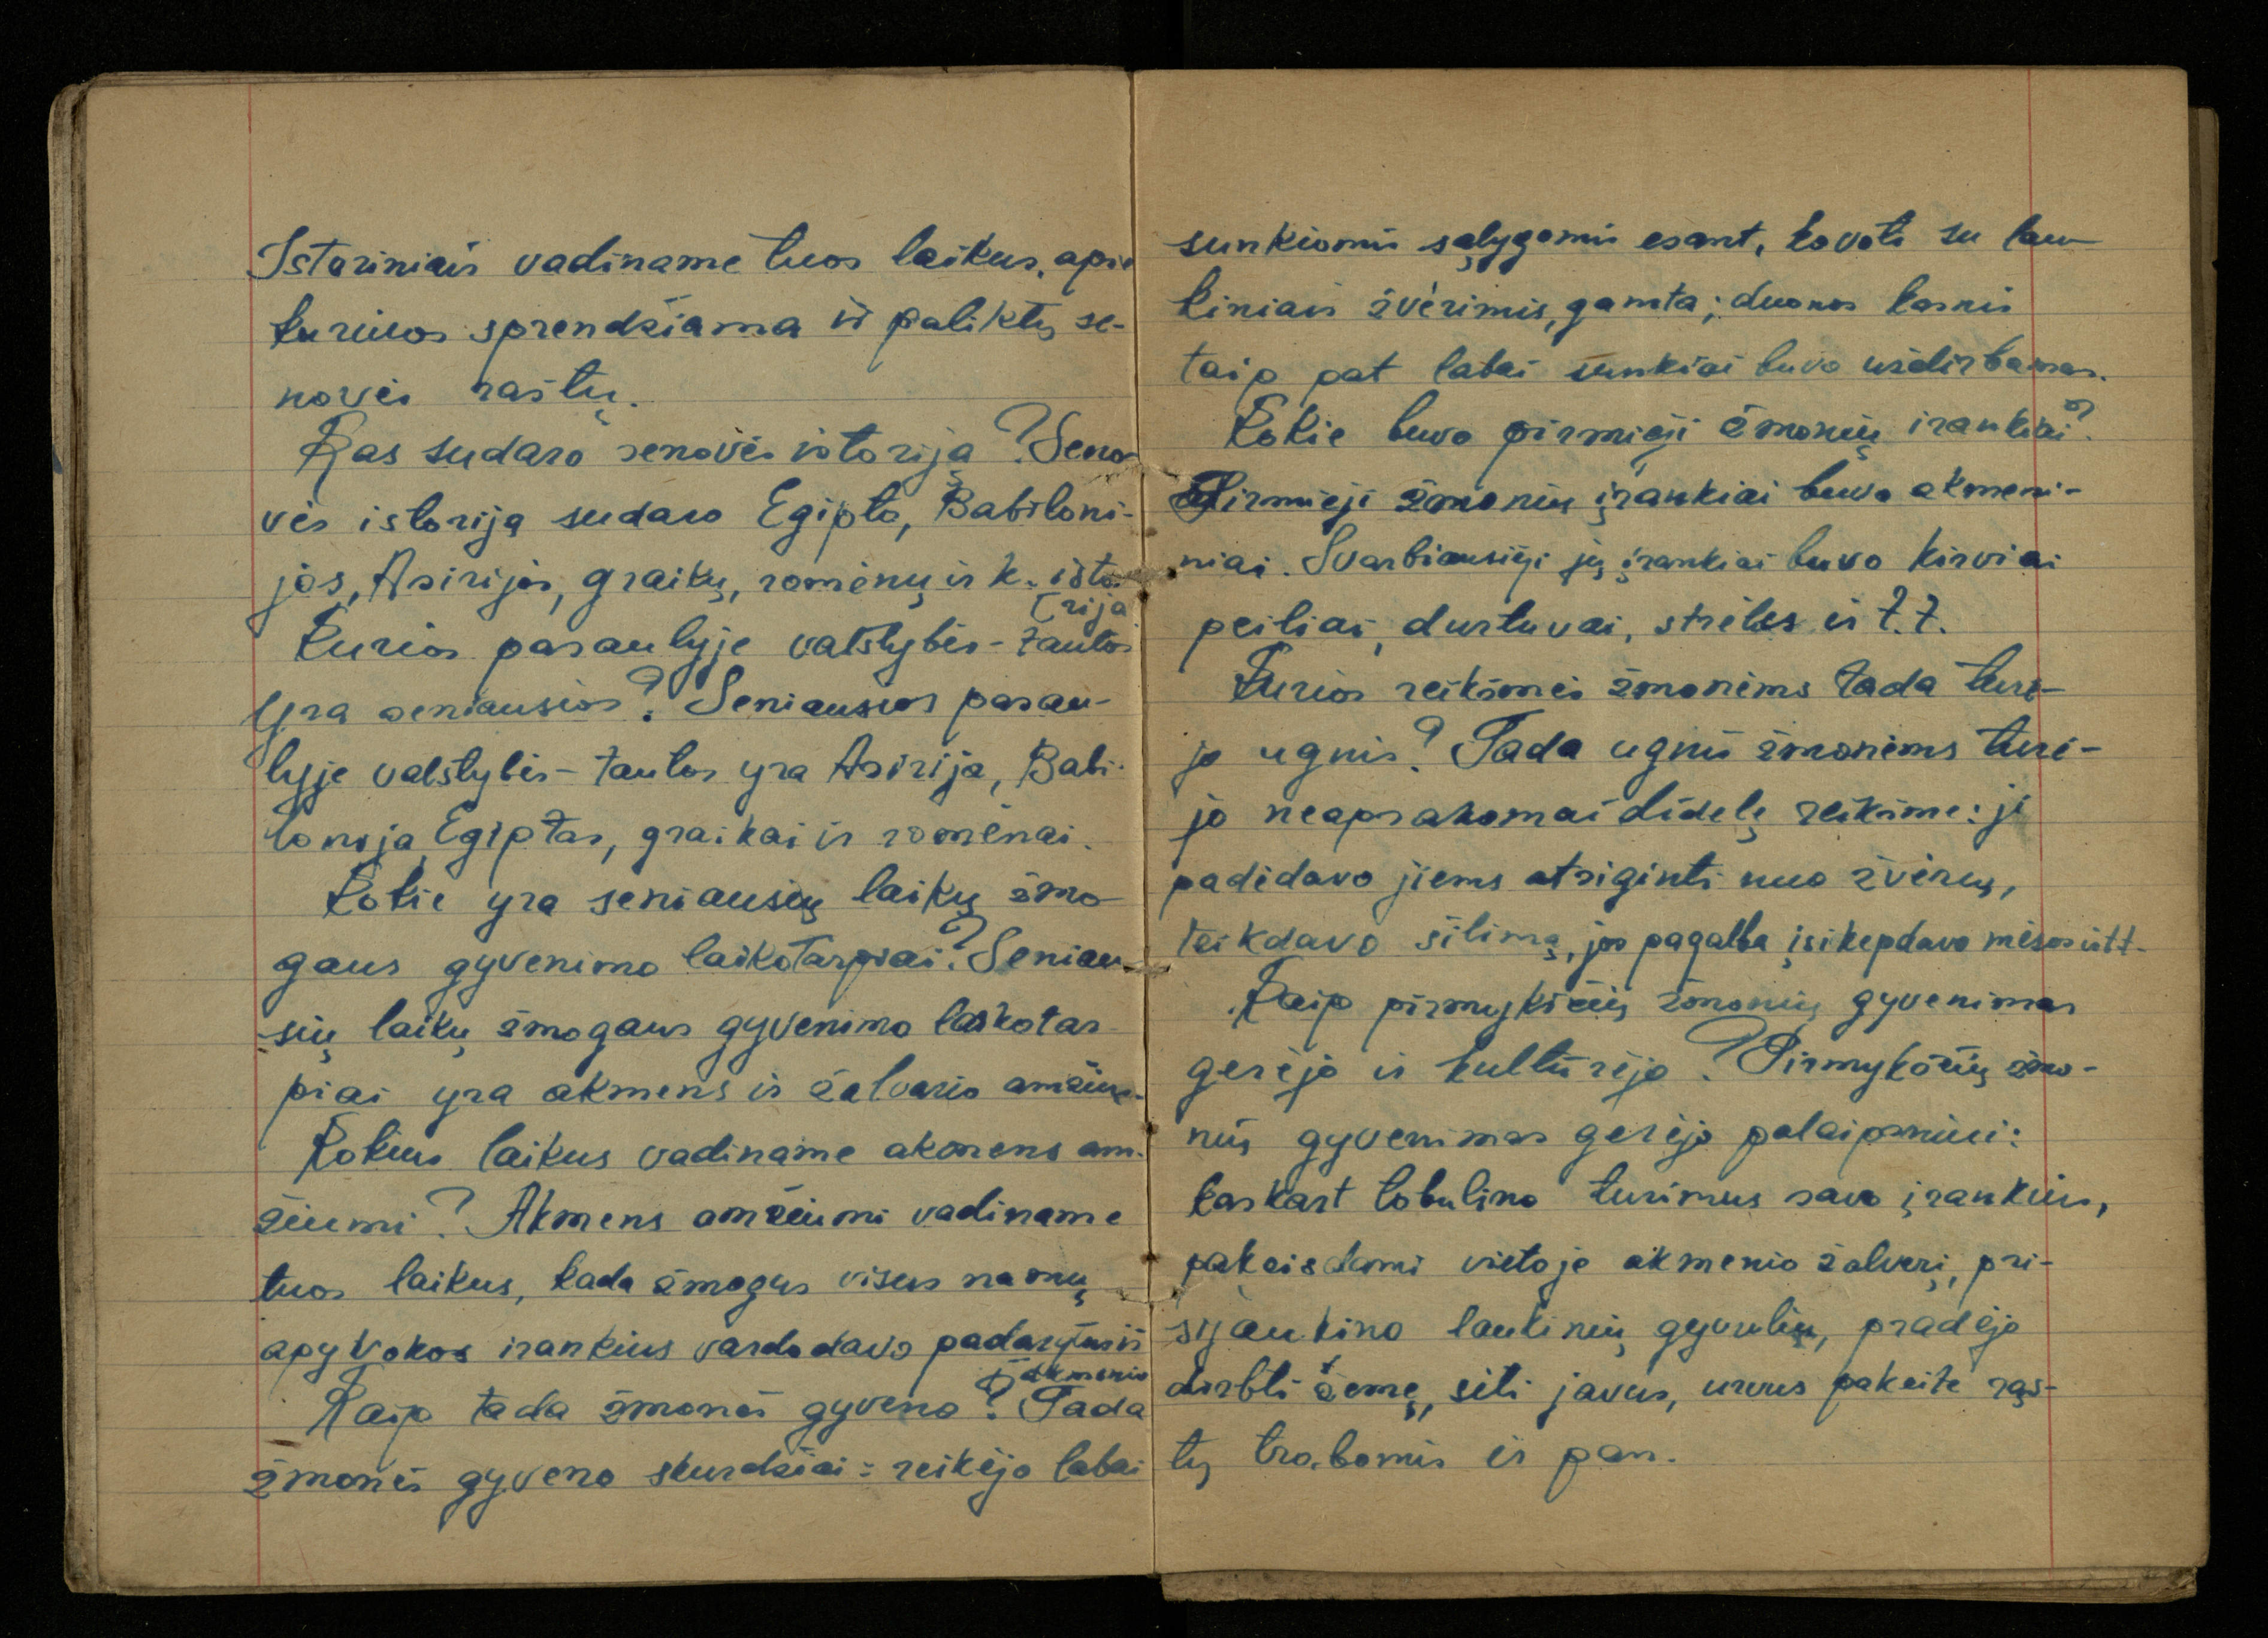 Istoriniais vadiname tuos laikus, apie
kuriuos sprendžiama iš paliktų se-
novės raštų.
Kas sudaro senovės istoriją? Seno-
vės istoriją sudaro Egipto, Babiloni-
jos, Asirijos, graikų, romėnų ir k. isto-
rija
Kurios pasaulyje valstybės - tautos
yra seniausios? Seniausios pasau-
lyje valstybės - tautos yra Asirija, Babi-
lonija, Egiptas, graikai ir romėnai.
Kokie yra seniausių laikų žmo-
gaus gyvenimo laikotarpiai? Seniau-
sių laikų žmogaus gyvenimo laikotar-
piai yra akmens ir žalvario amžius.
Kokius laikus vadiname akmens am-
žiumi? Akmens amžiumi vadiname
tuos laikus, kada žmogus visus namų
apyvokos irankius vardodavo padarytus iš
akmenio
Kaip tada žmonės gyveno? Tada
žmonės gyveno skurdžiai: reikėjo labai
sunkiomis sąlygomis esant, kovoti su lau-
kiniais žvėrimis, gamta; duonos kąsnis
taip pat labai sunkiai buvo uždirbamas.
Kokie buvo pirmieji žmonių irankiai?
Pirmieji žmonių įrankiai buvo akmeni-
niai. Svarbiausieji jų įrankiai buvo kirviai
peiliai, durtuvai, strėlės ir t.t.
Kurios reikšmės žmonėms tada turė-
jo ugnis? Tada ugnis žmonėms turė-
jo neapsakomai didelę reikšmę: ji
padėdavo jiems atsiginti nuo žvėrių,
teikdavo šilimą, jos pagalba įsikepdavo mėsos ir tt.
Kaip pirmykščių žmonių gyvenimas
gerėjo ir kultūrėjo? Pirmykščių žmo-
nių gyvenimas gerėjo palaipsniui:
kaskart tobulino turimus savo įrankius,
pakeisdami vietoje akmenio žalverį, pri-
sijaukino laukinių gyvulių, pradėjo
dirbti žemę, sėti javus, urvus pakeitė rąs-
tų trobomis ir pan.